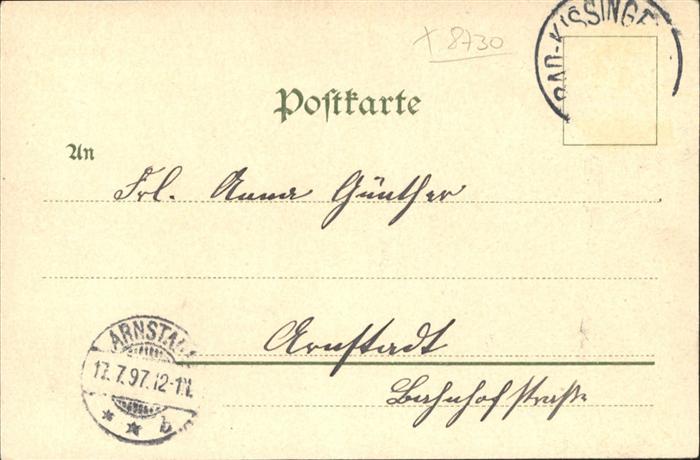 x 8730
BAD-KISSINGE
Postkarte
An
Frl. Anna Günther
Arnstadt
Bahnhofstraße
ARNSTA
17.7.97.12-1N.
* * b